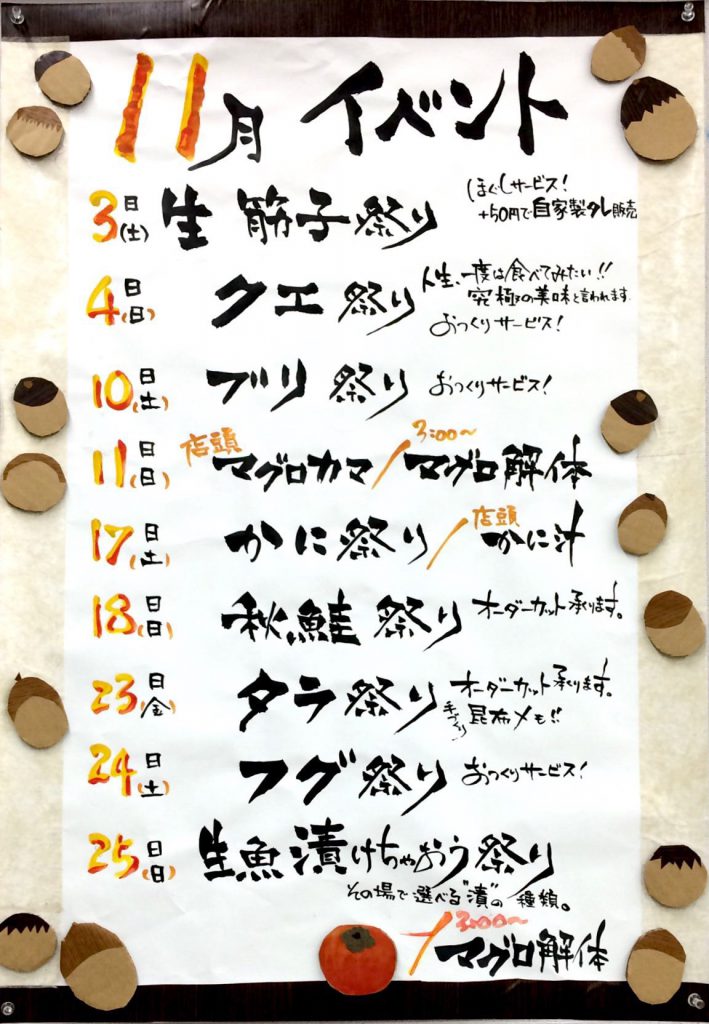 11月 イベント
3日(土) 生筋子祭り ほぐしサービス!
+50円で自家製タレ販売
4日(日) クエ祭り 人生、一度は食べてみたい!!
究極の美味と言われます。
おつくりサービス!
10日(土) ブリ祭り おつくりサービス!
11日(日) 店頭 マグロカマ/3:00〜 マグロ解体
17日(土) かに祭り/店頭 かに汁
18日(日) 秋鮭祭り オーダーカット承ります。
23日(金) タラ祭り オーダーカット承ります。
手づくり昆布〆も!!
24日(土) フグ祭り おつくりサービス!
25日(日) 生魚漬けちゃおう祭り
その場で選べる"漬"の種類。
/3:00〜 マグロ解体